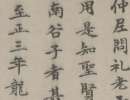 仲居問礼老
用是知聖賢
南谷子者其
至正三年龍